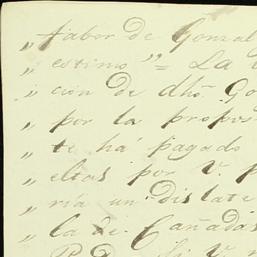 „ tabor de Gonzal
„ estimo ”= La
„ cion de dhō. Go
„ por la propos
„ te há pagado
„ eltas por V. p
„ ria un dislate
„ la de Cañadas